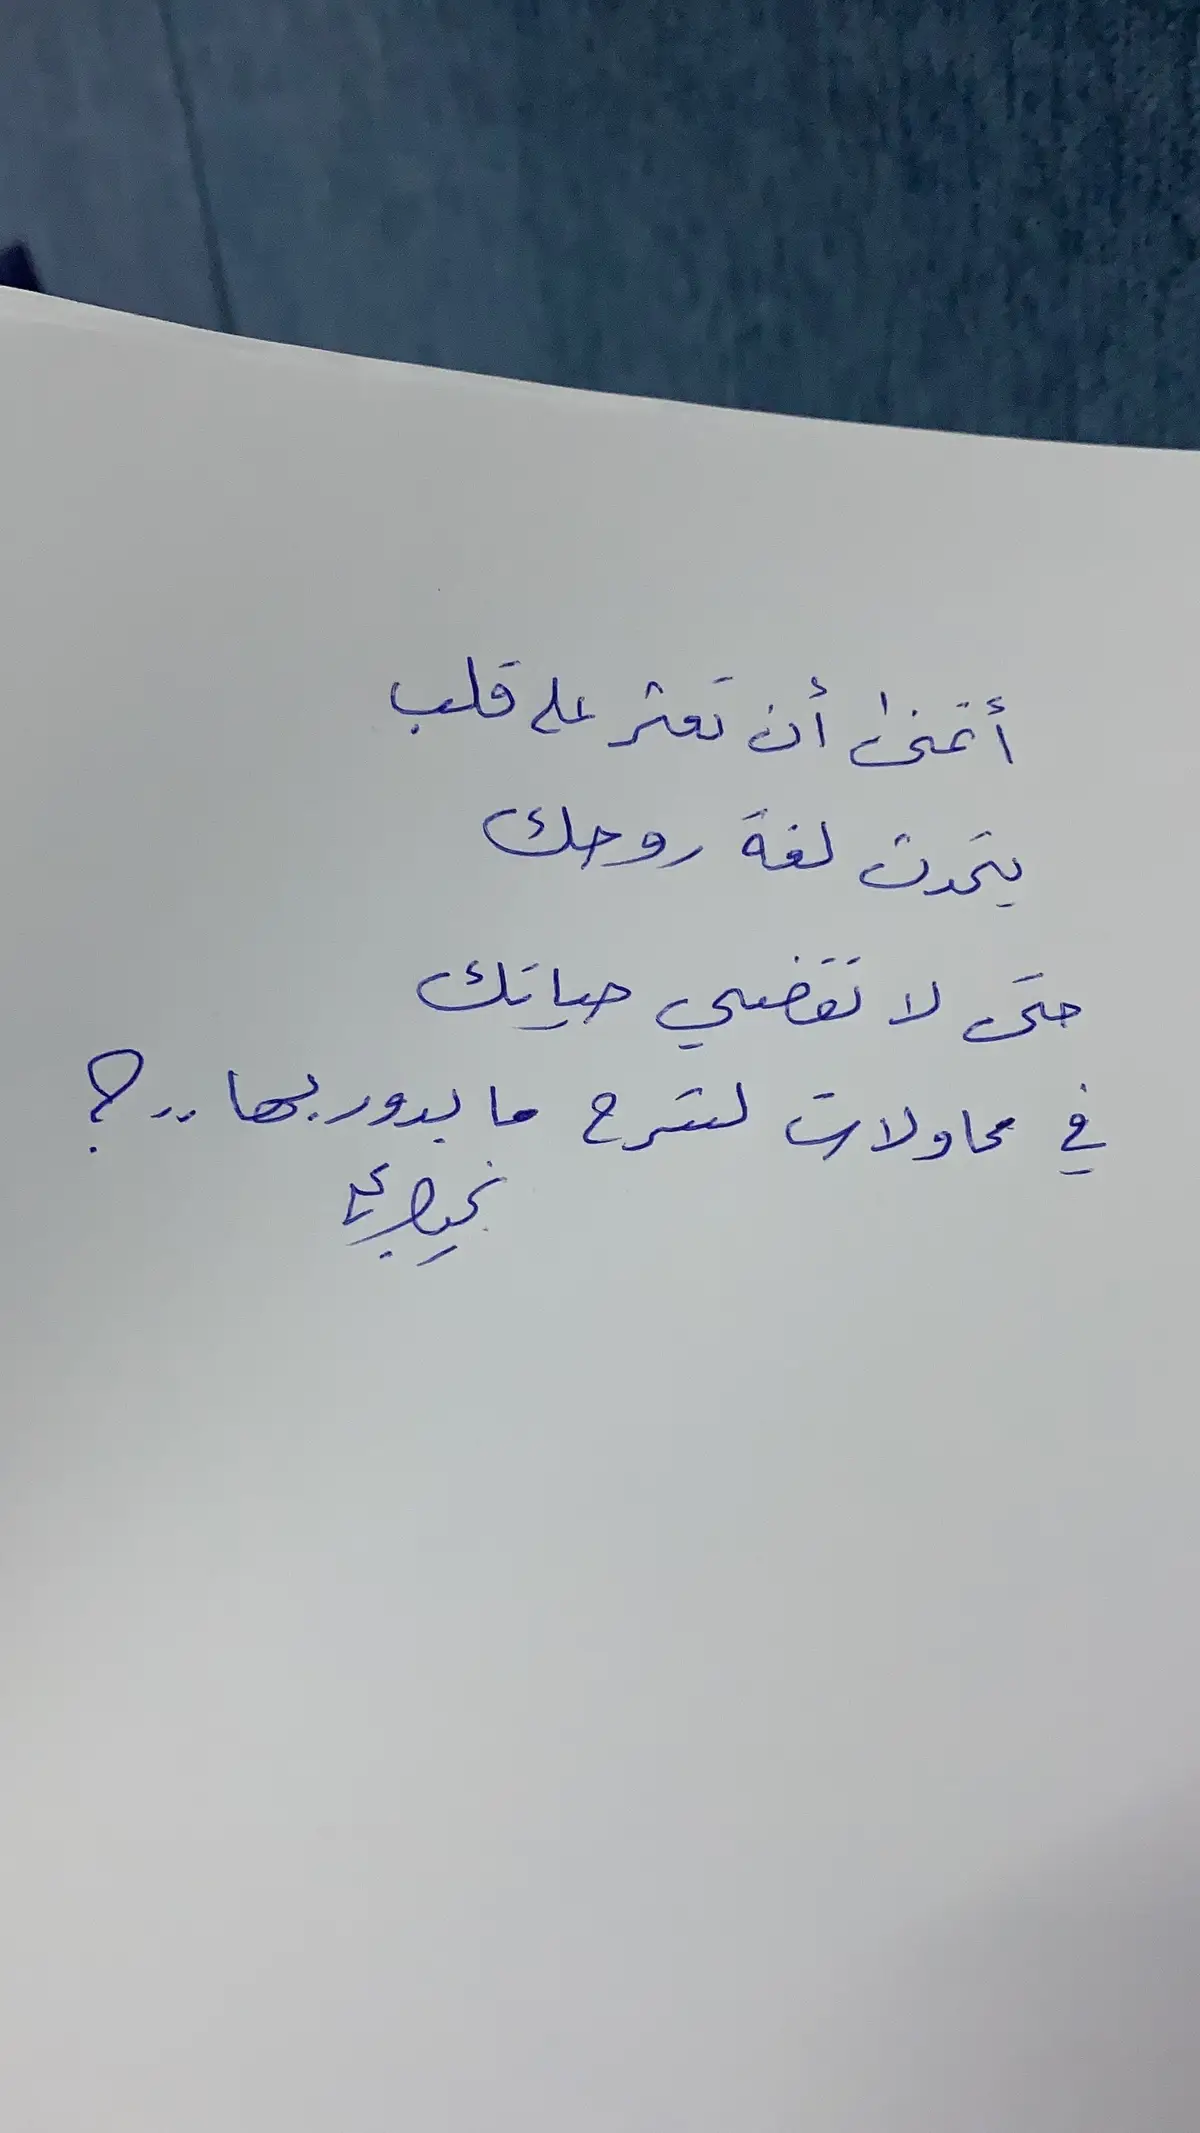 أتمنى أن تعثر على قلب
يتحدث لغة روحك
حتى لا تقضي حياتك
في محاولات لشرح ما يدور بها ..؟